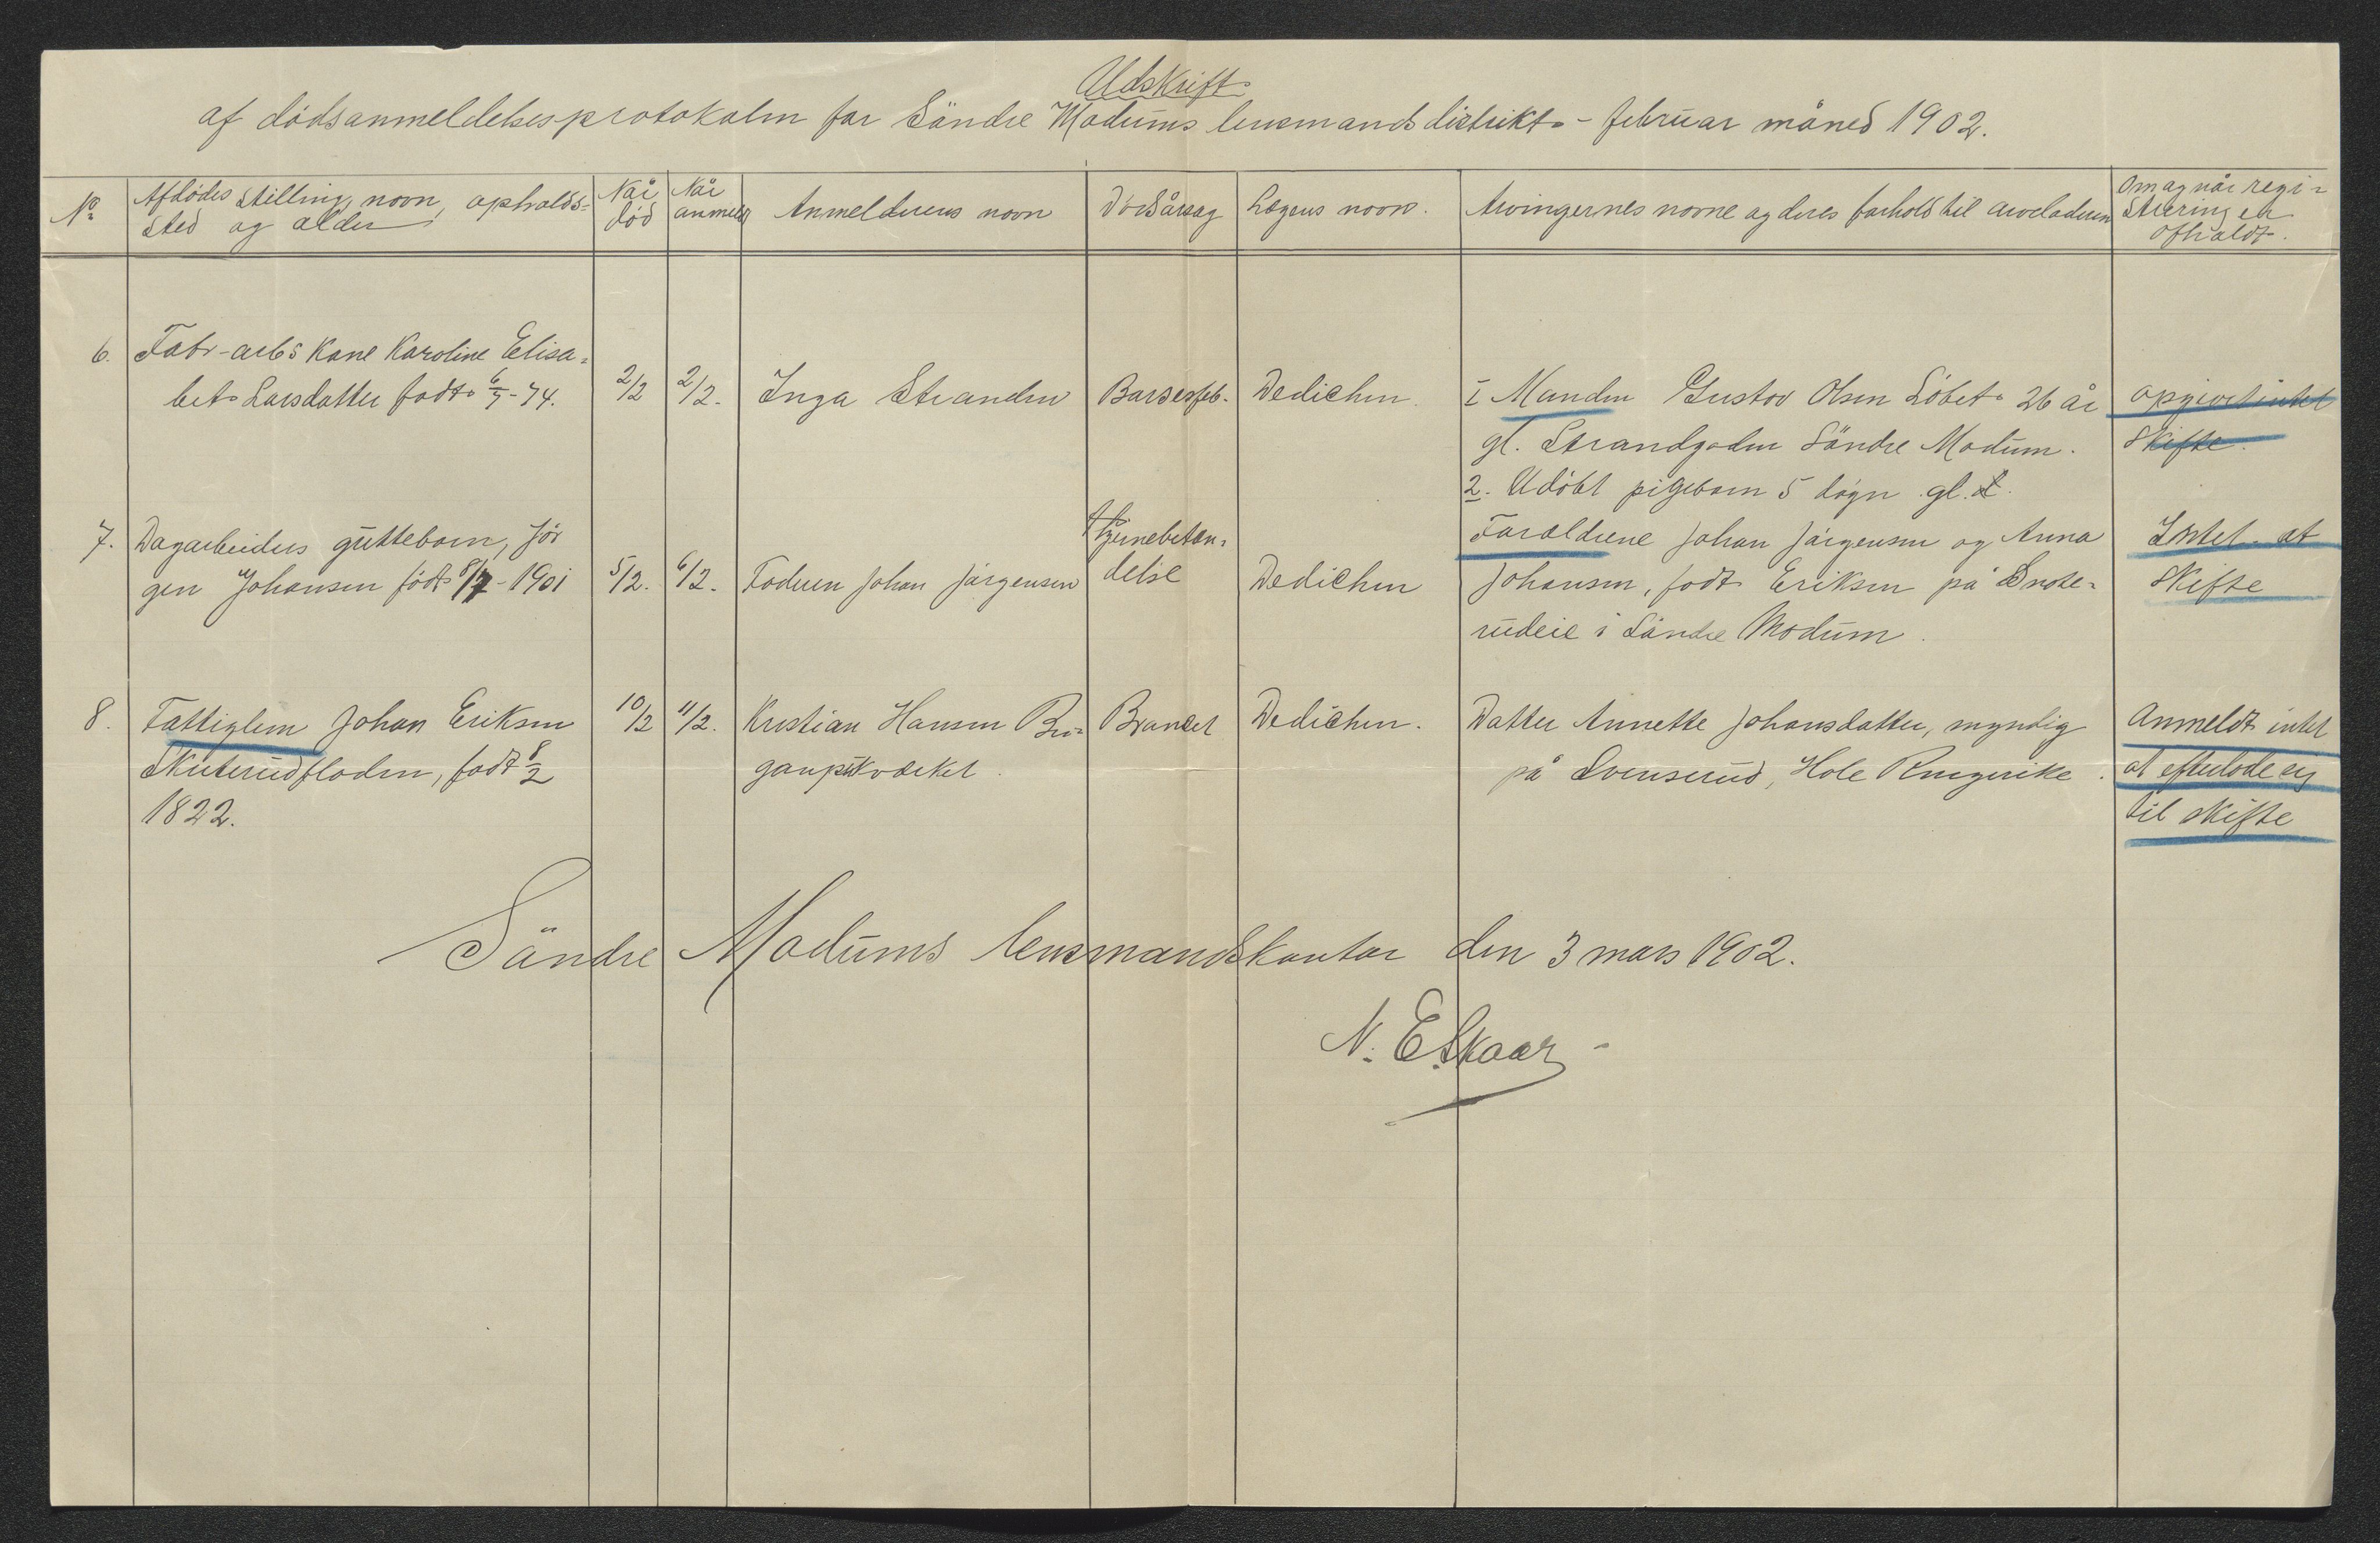 Udskrift
af dödsanmeldelsesprotokolen for Söndre Modums lensmandsdistrikt - februar måned 1902.
No
Afdödes stilling, navn, opholds=
sted og alder
Når
död
Når
anmeldt
Anmelderens navn
Dödsårsag
Lægens navn.
Arvingernes navne og deres forhold til arveladeren
Om og når regi=
strering er
afholdt.
6.
Fabr-arbs kone Karoline Elisa=
bet Larsdatter födt 6/5-74.
2/2
2/2.
Inga Stranden
Barselsfeb.
Dedichen.
1 Manden Gustav Olsen Löbet 26 år
gl. Strandgaden Söndre Modum.
2. Udöbt pigebarn 5 dögn gl.
opgivet intet
skifte.
7.
Dagarbeiders guttebarn, Jör
gen Johansen födt 8/7-1901
5/2.
6/2.
Faderen Johan Jörgensen
Hjernebetæn=
delse
Dedichen
Forældrene Johan Jörgensen og Anna
Johansen, födt Eriksen på Snare=
rudeie i Söndre Modum.
Intet at
skifte
8.
Fattiglem Johan Eriksen
Skuterudfladen, födt 8/2
1822.
10/2
11/2.
Kristian Hansen
Brandet
Dedichen.
Datter Annette Johansdatter, myndig
på Svenserud, Hole Ringerike.
Anmeldt intet
at efterlade sig
til skifte
Söndre Modums lensmandskontor den 3 mars 1902.
N. E. Skaar